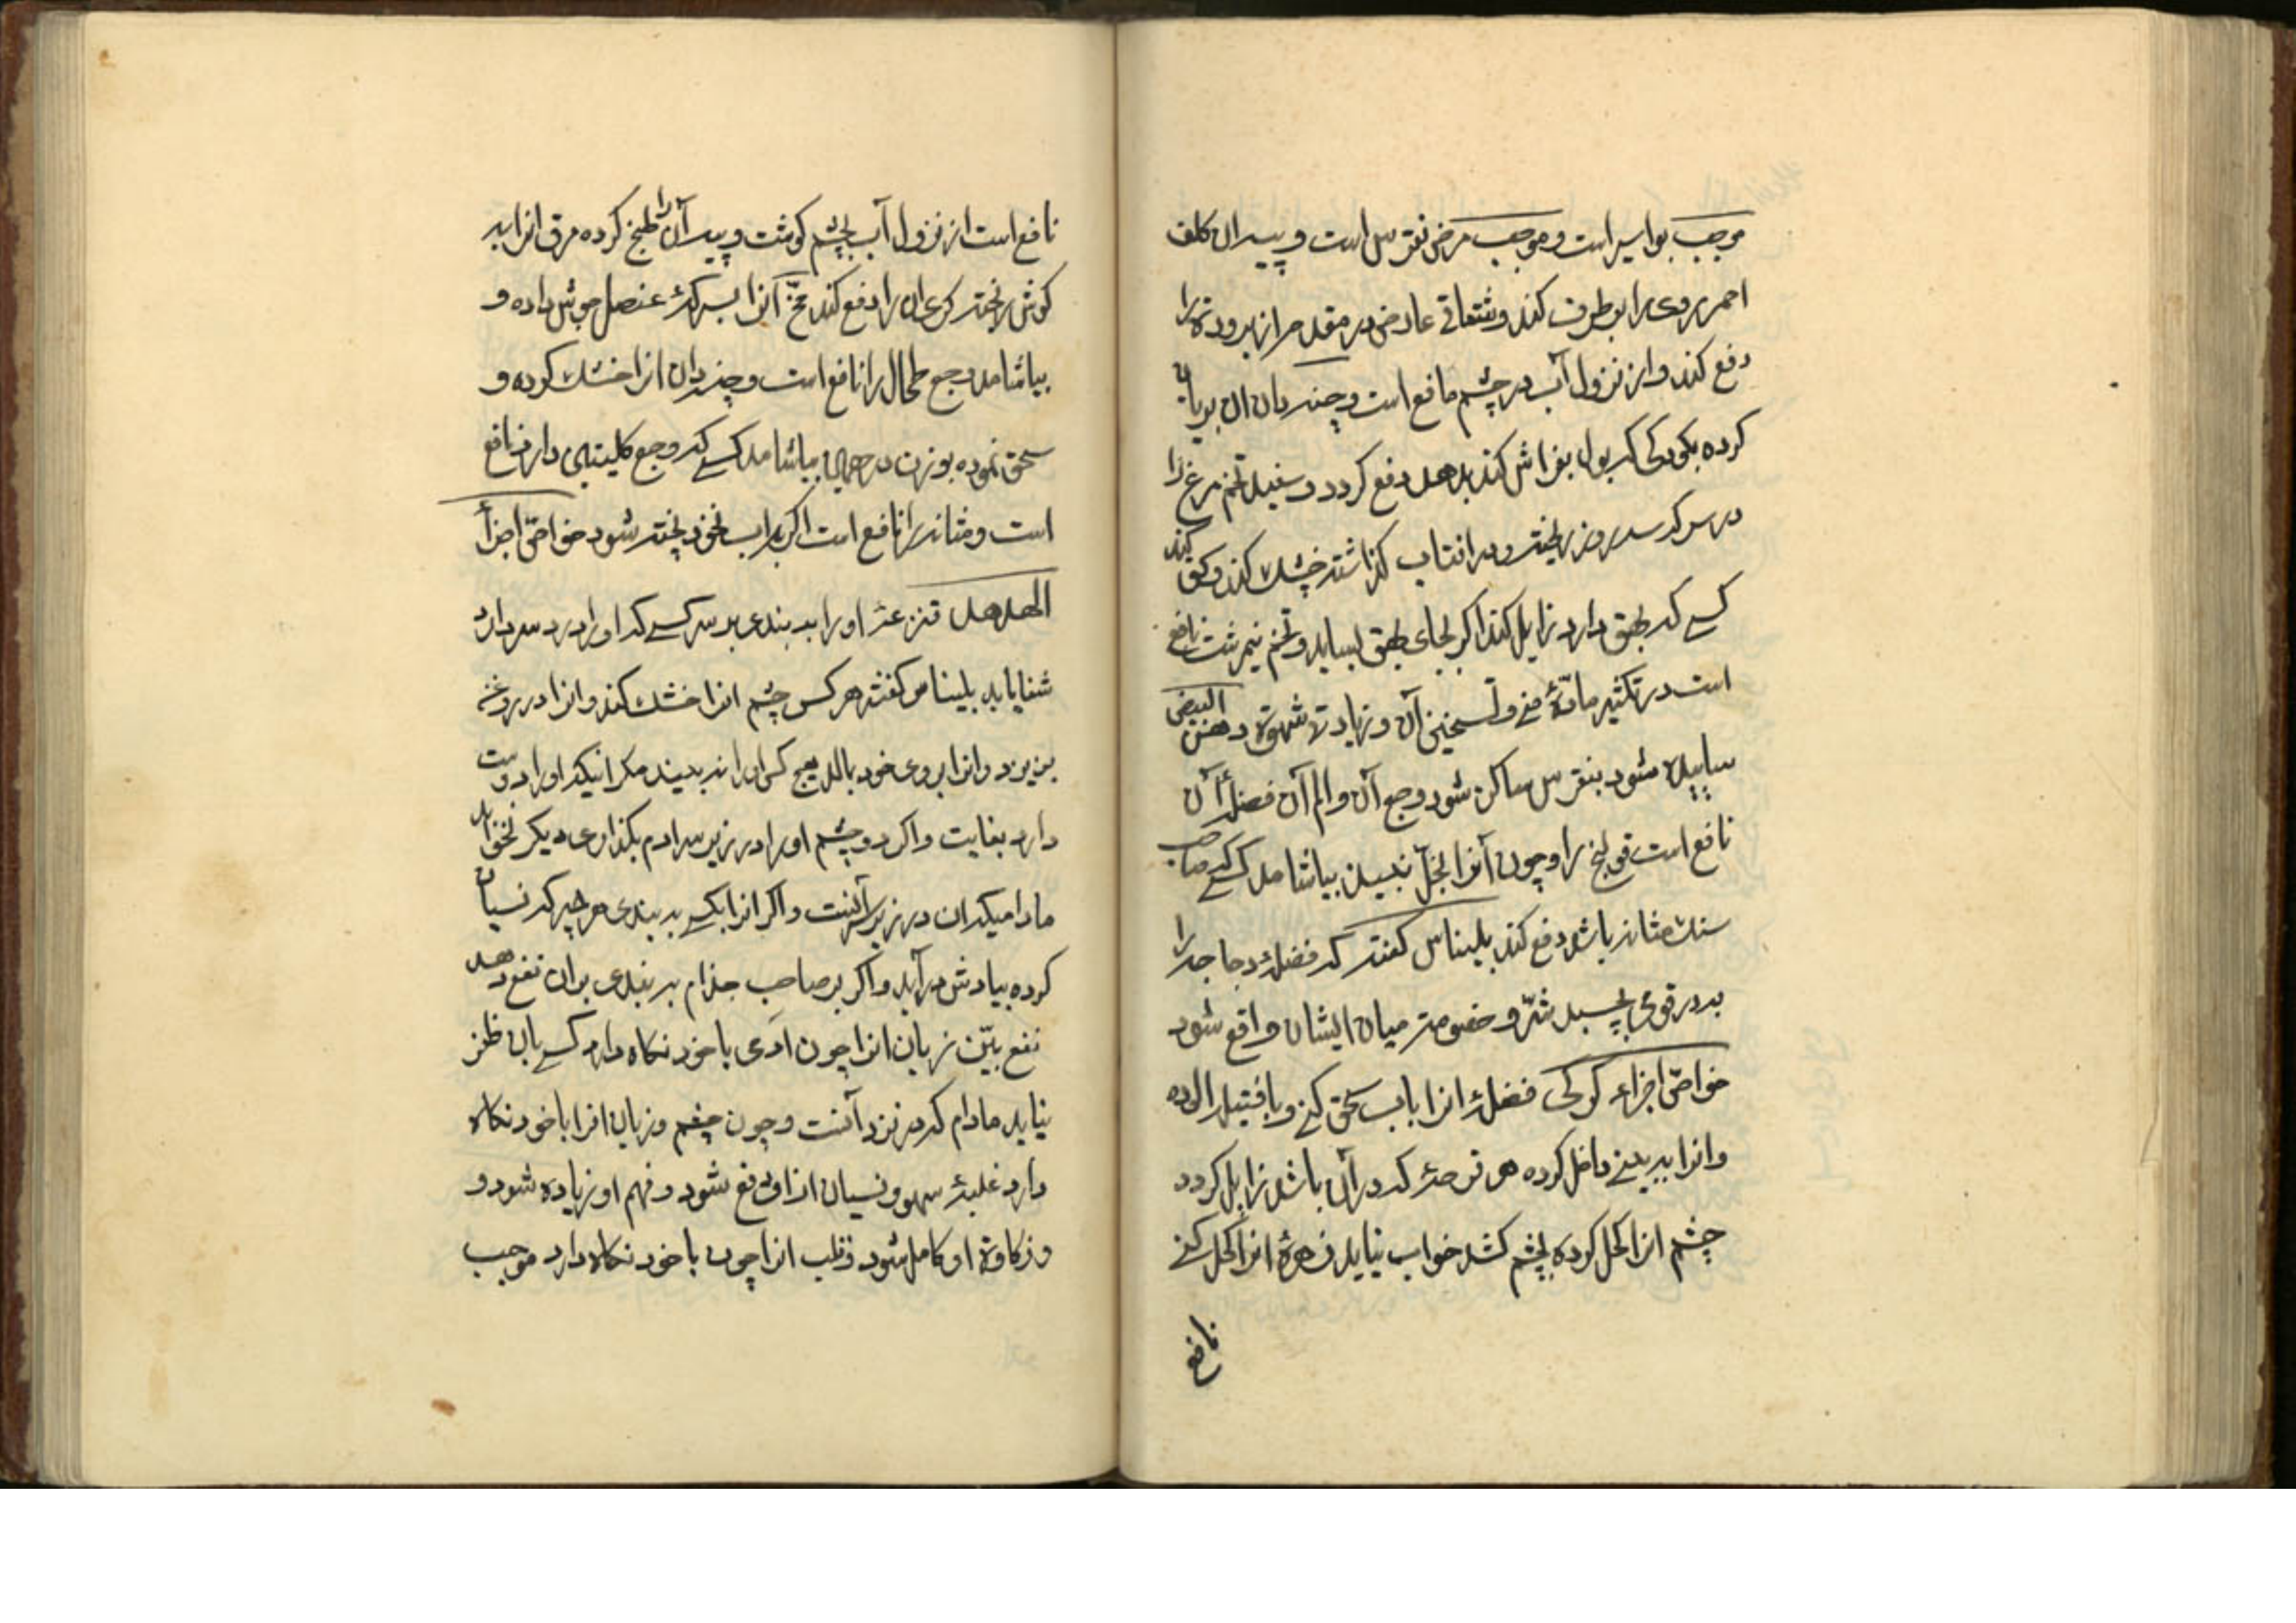 موجب بواسیر است و موجب مرض نقرس است و پیه ان کلف
احمر روی را بر طرف کند و شقاقی عارض در مقعد مر از برودة را
دفع کند و از نزول آب در چشم مانع است و چینه دان ان بریان
کرده بکودکی که بول بفراش کند بدهد دفع کردد و سفیده تخم مرغ را
در سرکه سه روز ریخته و در افتاب کذاشته خشک کند و سحق کند
کسی که بهق دارد زایل کند اکر بجای بهق بساید و تخم نیمرشت نافع
است در تکثیر مادّهٔ منی و تسخین آن و زیادت شهوة و دهن البیض
ساییده شود بنقرس ساکن شود وجع آن و الم آن فضلهٔ آن
نافع است قولنج را و چون آنرا بخل نبیذ بیاشامد کسی که صاحب
سنک مثانه باشد دفع کند بلیناس کفته که فضلهٔ دجاجه را
بدر قومی بچسبد شرّ و خصومة میان ایشان واقع شود
خواصّ اجزاء کرکی فضلهٔ انرا باب سحق کنی و با فتیله الوده
و انرا به بینی داخل کرده هر قرحهٔ که در آن باشد زایل کردد
چشم انرا کحل کرده بچشم کشد خواب نیاید زهرهٔ انرا کحل کنی
نافع
نافع است از نزول آب بچشم کوشت و پیه آن را طبخ کرده مرق انرا بد
کوش ریخته کری ان را دفع کند مخّ آنرا بسرکهٔ عنصل جوش داده و
بیاشامد وجع طحال را نافع است و چینه دان انرا خشک کرده و
سحق نموده بوزن درهمی بیاشامد کسی که وجع کلیتین دارد نافع
است و مثانه را نافع است اکر باب نخود پخته شود خواصّ اجزأ
الهدهد قنزعهٔ او را به بندی بر سر کسی که او را درد سر دارد
شفا یابد بلیناس کفته هر کس چشم انرا خشک کند و انرا در روغن
بریزد و انرا بروی خود بمالد هیچ کس او را نه بیند مکر انیکه او را دوست
دارد بغایت و اکر دو چشم او را در زیر سر ادم بکذاری دیکر نخوابد
مادامیکه ان در زیر سر آنست و اکر انرا بکسی به بندی هر چیز که نسیان
کرده بیادش در آید و اکر بر صاحب جذام به بندی بر ان نفع دهد
نفع بیّن زبان انرا چون ادمی با خود نکاه دارد کسی بان ظفر
نیابد مادام که در نزد آنست و چون چشم و زبان انرا با خود نکاه
دارد غلبهٔ سهو و نسیان از او دفع شود و فهم او زیاده شود و
و ذکاوة او کامل شود و قلب انرا چون با خود نکاه دارد موجب